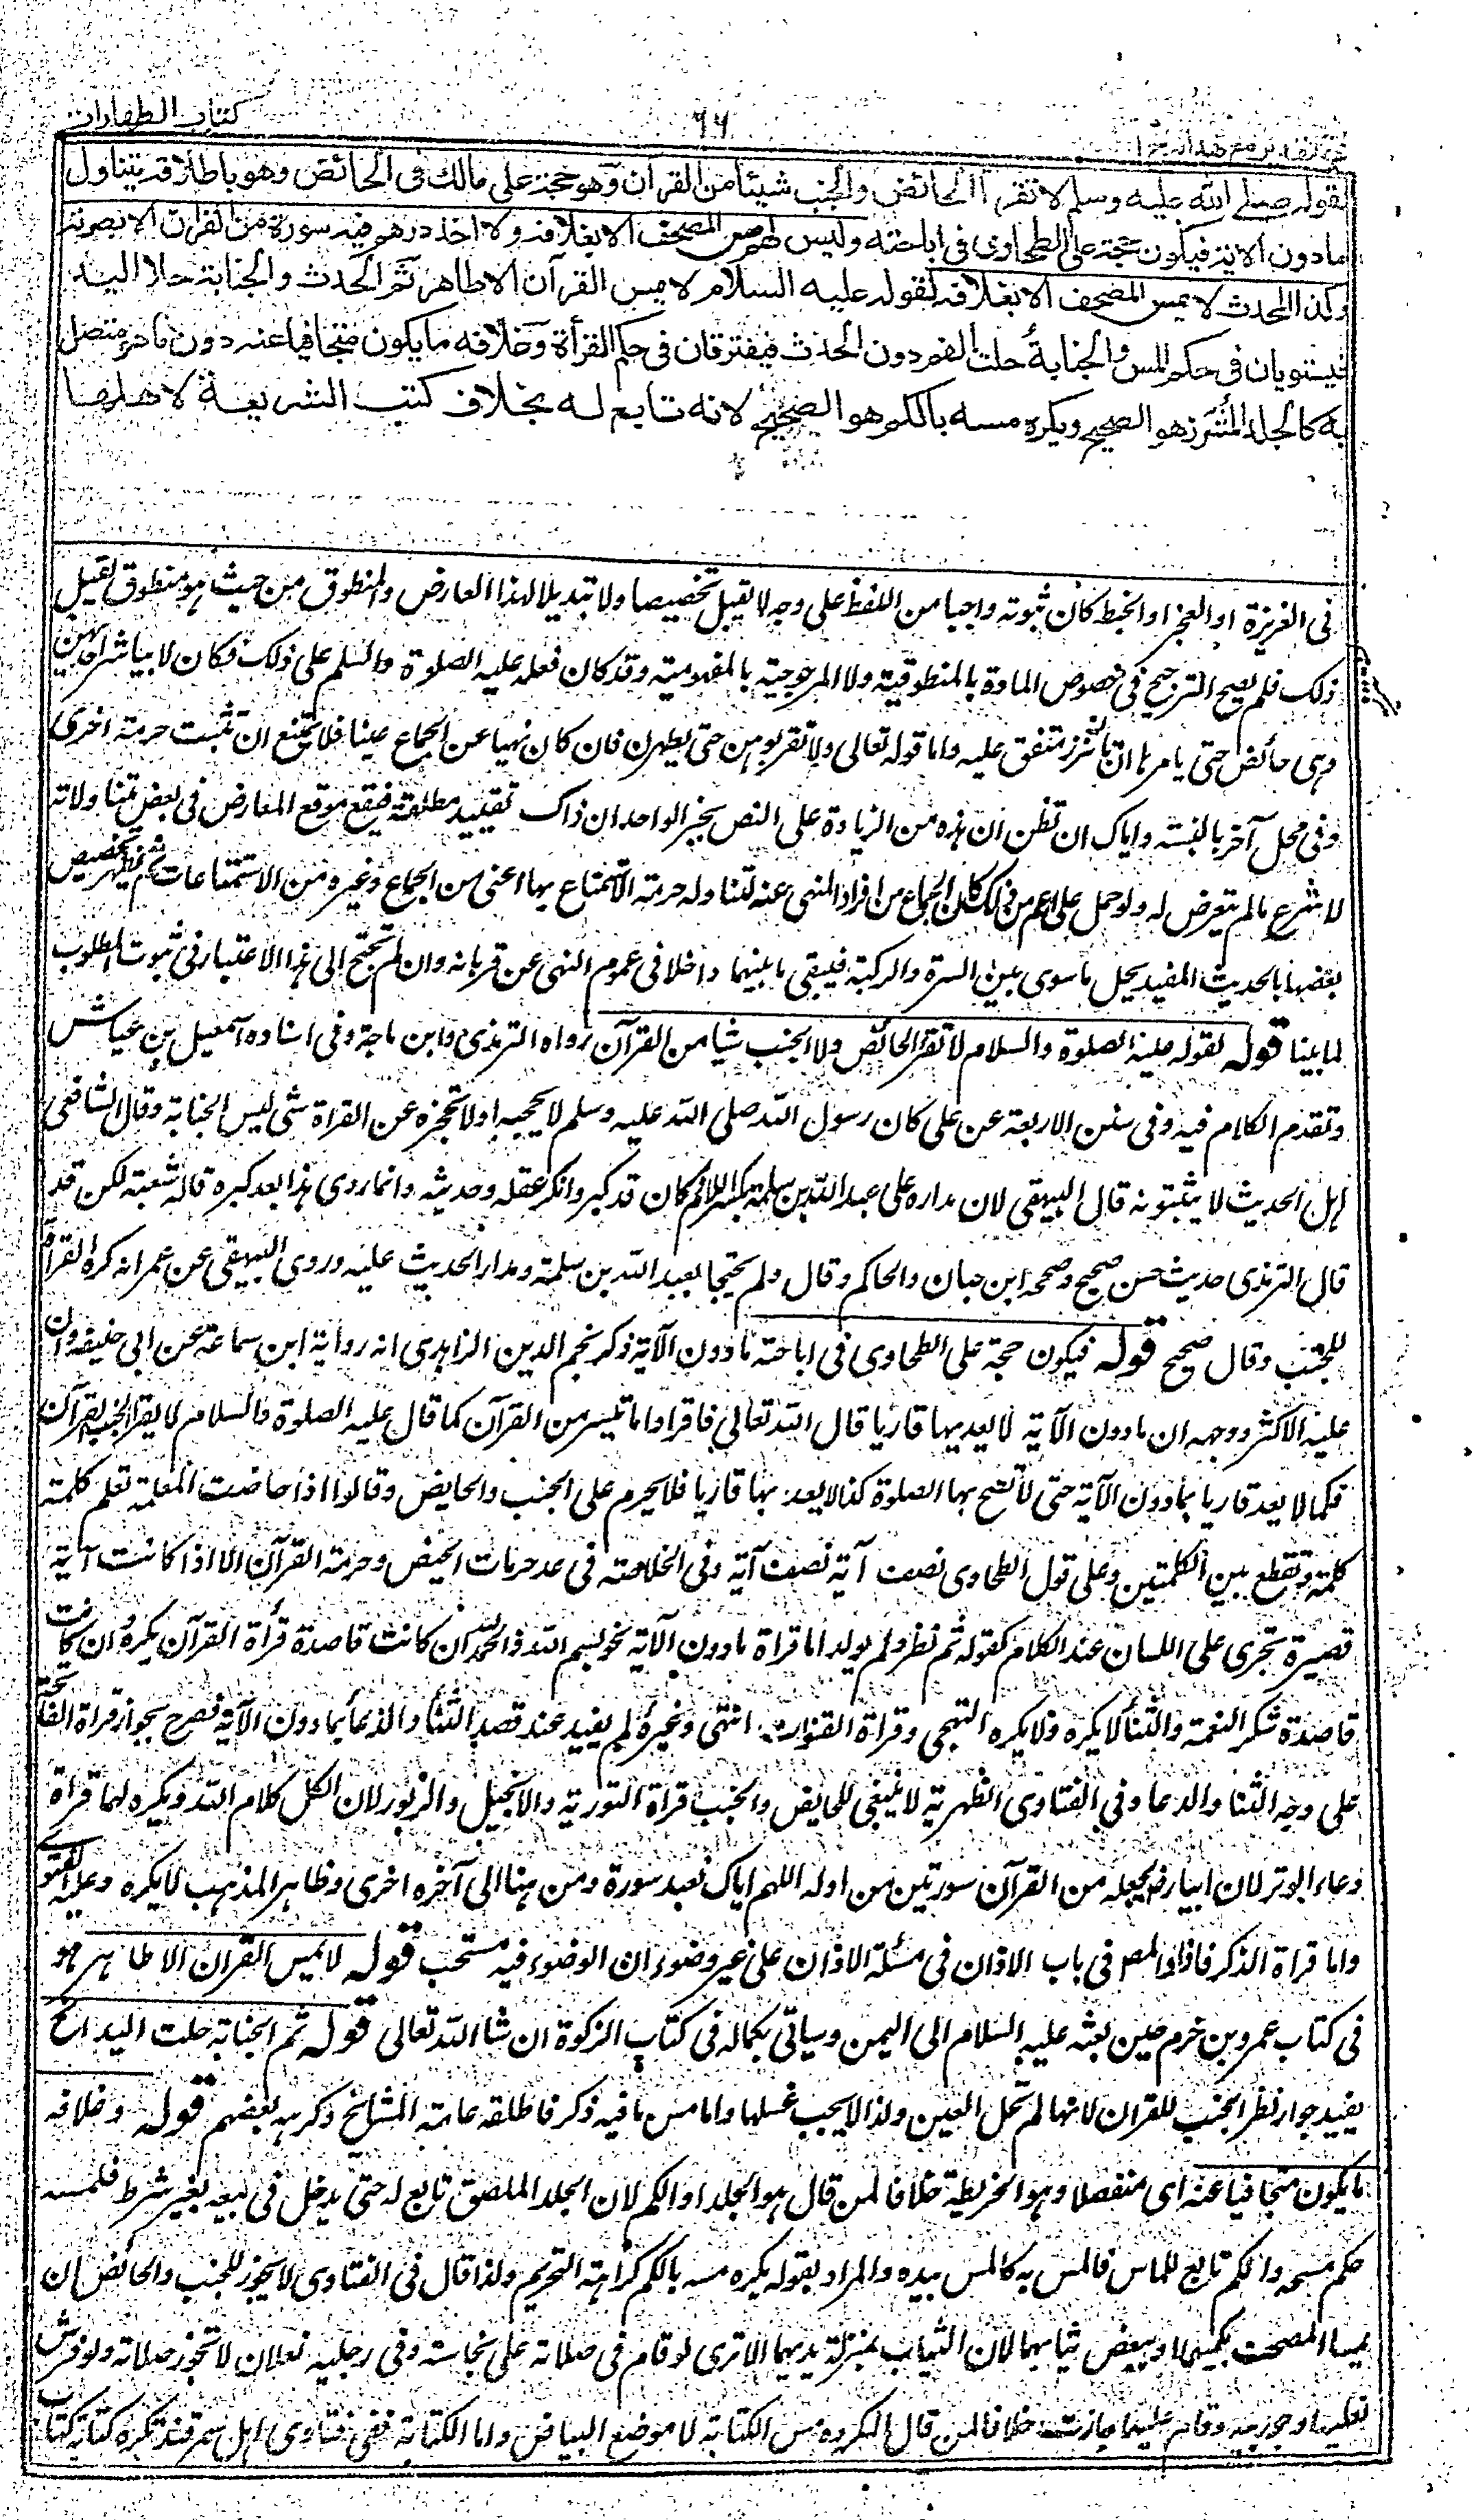 كتاب الطهارات
٦٦
فتح القدير مع هداية ج ١
لقوله صلى الله عليه وسلم لا تقرأ الحائض والجنب شيئا من القرآن وهو حجة على مالك فى الحائض وهو باطلاقه يتناول
مادون الاية فيكون حجة على الطحاوى فى اباحته وليس لهم مس المصحف الا بغلافه ولا اخذ درهم فيه سورة من القرآن الا بصرته
وكذا المحدث لا يمس المصحف الا بغلافه لقوله عليه السلام لا يمس القرآن الا طاهر ثم الحدث والجنابة حلا اليد
فيستويان فى حكم المس والجنابة حلت الفم دون الحدث فيفترقان فى حكم القرأة وغلافه ما يكون متجافيا عنه دون ما هو متصل
به كالجلد المشرز هو الصحيح ويكره مسه بالكم هو الصحيح لانه تابع له بخلاف كتب الشريعة لاهلها
فى الغريزة او العجز او الخبط كان ثبوته واجبا من اللفظ على وجه لا يقبل تخصيصا ولا تبديلا لهذا العارض والمنطوق من حيث هو منطوق يقبل
ذلك فلم يصح الترجيح فى خصوص المادة بالمنطوقية ولا المرجوحية بالمفهومية وقد كان فعله عليه الصلوة والسلم على ذلك فكان لا يباشر احدهن
وهى حائض حتى يأمرها ان تأتزر متفق عليه واما قوله تعالى ولا تقربوهن حتى يطهرن فان كان نهيا عن الجماع عينا فلا يمتنع ان تثبت حرمة اخرى
وفى محل آخر بالسنة واياك ان تظن ان هذه من الزيادة على النص بخبر الواحد ان ذاك تقييد مطلقة فيقع موقع المعارض فى بعض متناولاته
لا شرع ما لم يتعرض له ولو حمل على اعم من ذلك كان الجماع من افراد المنهى عنه لتناوله حرمة الاستمتاع بها اعنى من الجماع وغيره من الاستمتاعات ثم يظهر تخصيص
بعضها بالحديث المفيد يحل ما سوى بين السرة والركبة فيبقى ما بينهما داخلا فى عموم النهى عن قربانه وان لم تحتج الى هذا الاعتبار فى ثبوت المطلوب
لما بينا قوله لقوله عليه الصلوة والسلام لا تقرأ الحائض ولا الجنب شيا من القرآن رواه الترمذى وابن ماجة وفى اسناده اسمعيل بن عياش
وتقدم الكلام فيه وفى سنن الاربعة عن على كان رسول الله صلى الله عليه وسلم لا يحجبه او لا يحجزه عن القراة شى ليس الجنابة وقال الشافعى
اهل الحديث لا يثبتونه قال البيهقى لان مداره على عبد الله بن سلمة بكسر اللام كان قد كبر وانكر عقله وحديثه وانما روى هذا بعد كبره قاله شعبة لكن قد
قال الترمذى حديث حسن صحيح وصححه ابن حبان والحاكم وقال ولم يحتجا بعبد الله بن سلمة ومدار الحديث عليه وروى البيهقى عن عمر انه كره القرآة
للجنب وقال صحيح قوله فيكون حجة على الطحاوى فى اباحته مادون الآية ذكر نجم الدين الزاهدى انه رواية ابن سماعة عن ابى حنيفه وان
عليه الاكثر ووجهه ان مادون الآية لا يعد بها قاريا قال الله تعالى فاقراوا ما تيسر من القرآن كما قال عليه الصلوة والسلام لا يقرا الجنب القرآن
فكما لا يعد قاريا بمادون الآية حتى لا تصح بها الصلوة كذا لا يعد بها قاريا فلا يحرم على الجنب والحايض وقالوا اذا حاضت المعلمة تعلم كلمة
كلمة وتقطع بين الكلمتين وعلى قول الطحاوى نصف آية نصف آية وفى الخلاصة فى عد حرمات الحيض وحرمة القرآن الا اذا كانت آية
قصيرة تجرى على اللسان عند الكلام كقوله ثم نظر ولم يولد اما قراة مادون الآية نحو بسم الله والحمد لله ان كانت قاصدة قرأة القرآن يكره وان كانت
قاصدة شكر النعمة والثنأ لا يكره ولا يكره التهجى وقراة القنوت انتهى وغيره لم يقيد عند قصد الثنأ والدعأ بمادون الآية فصرح بجواز قراة الفاتحة
على وجه الثنا والدعا وفى الفتاوى الظهرية لا ينبغى للحايض والجنب قراة التورية والانجيل والزبور لان الكل كلام الله ويكره لهما قراة
دعاء الوتر لان ابيا رض يجعله من القرآن سورتين من اوله اللهم اياك نعبد سورة ومن هنا الى آخره اخرى وظاهر المذهب لا يكره وعليه الفتوى
واما قراة الذكر فافاد المص فى باب الاذان فى مسئلة الاذان على غير وضوء ان الوضوء فيه مستحب قوله لا يمس القرآن الا طاهر هو
فى كتاب عمرو بن حزم حين بعثه عليه السلام الى اليمن وسياتى بكماله فى كتاب الزكوة ان شا الله تعالى قوله ثم الجنابة حلت اليد الخ
يفيد جواز نظر الجنب للقرآن لانها لم تحل العين ولذا لا يجب غسلها واما مس ما فيه ذكر فاطلقه عامة المشايخ وكرهه بعضهم قوله وغلافه
ما يكون متجافيا عنه اى منفصلا وهو الخريطة خلافا لمن قال هو الجلد او الكم لان الجلد الملصق تابع له حتى يدخل فى بيعه بغير شرط فلمسه
حكم مسه والكم تابع للماس فالمس به كالمس بيده والمراد بقوله يكره مسه بالكم كراهة التحريم ولذا قال فى الفتاوى لا يجوز للجنب والحائض ان
يمسا المصحف بكمهما او ببعض ثيابهما لان الثياب بمنزلة يديهما الا ترى لو قام فى صلاته على نجاسة وفى رجليه نعلان لا تجوز صلاته ولو فرش
نعليه او جوربيه وقام عليهما جازت خلافا لمن قال المكروه مس الكتابة لا موضع البياض واما الكتابة ففى فتاوى اهل سمرقند تكره كتابة كتاب